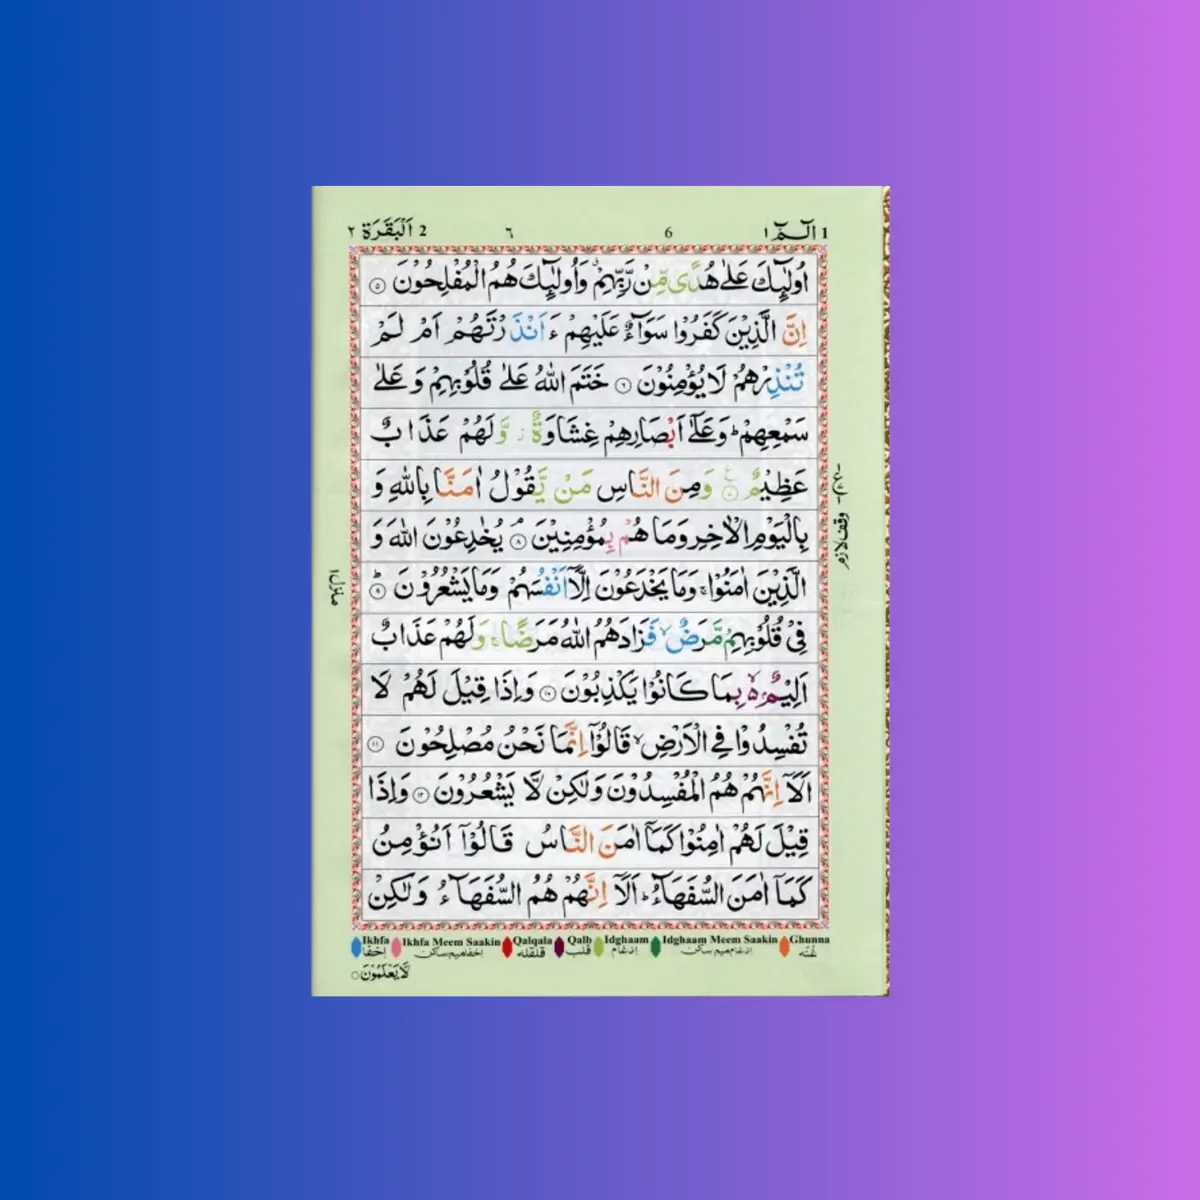 1 الٓـمّٓ ١ 6 ٦ 2 اَلْبَقَرَة ٢
اُولٰٓئِكَ عَلٰى هُدًى مِّنْ رَّبِّهِمْ ۗ وَاُولٰٓئِكَ هُمُ الْمُفْلِحُوْنَ ۝٥
اِنَّ الَّذِيْنَ كَفَرُوْا سَوَآءٌ عَلَيْهِمْ ءَاَنْذَرْتَهُمْ اَمْ لَمْ
تُنْذِرْهُمْ لَا يُؤْمِنُوْنَ ۝٦ خَتَمَ اللّٰهُ عَلٰى قُلُوْبِهِمْ وَعَلٰى
سَمْعِهِمْ ؕ وَعَلٰٓى اَبْصَارِهِمْ غِشَاوَةٌ ز وَّلَهُمْ عَذَابٌ
عَظِيْمٌ ۝٧ وَمِنَ النَّاسِ مَنْ يَّقُوْلُ اٰمَنَّا بِاللّٰهِ وَ
بِالْيَوْمِ الْاٰخِرِ وَمَا هُمْ بِمُؤْمِنِيْنَ ۝٨ يُخٰدِعُوْنَ اللّٰهَ وَ
الَّذِيْنَ اٰمَنُوْا ۚ وَمَا يَخْدَعُوْنَ اِلَّآ اَنْفُسَهُمْ وَمَا يَشْعُرُوْنَ ۝٩ؕ
فِيْ قُلُوْبِهِمْ مَّرَضٌ ۙ فَزَادَهُمُ اللّٰهُ مَرَضًا ۚ وَلَهُمْ عَذَابٌ
اَلِيْمٌ ۢ ۙ بِمَا كَانُوْا يَكْذِبُوْنَ ۝١٠ وَاِذَا قِيْلَ لَهُمْ لَا
تُفْسِدُوْا فِي الْاَرْضِ ۙ قَالُوْٓا اِنَّمَا نَحْنُ مُصْلِحُوْنَ ۝١١
اَلَآ اِنَّهُمْ هُمُ الْمُفْسِدُوْنَ وَلٰكِنْ لَّا يَشْعُرُوْنَ ۝١٢ وَاِذَا
قِيْلَ لَهُمْ اٰمِنُوْا كَمَآ اٰمَنَ النَّاسُ قَالُوْٓا اَنُؤْمِنُ
كَمَآ اٰمَنَ السُّفَهَآءُ ؕ اَلَآ اِنَّهُمْ هُمُ السُّفَهَآءُ وَلٰكِنْ
وقف لازم
منزل ١
Ikhfa Ikhfa Meem Saakin Qalqala Qalb Idghaam Idghaam Meem Saakin Ghunna
اِخفَا اِخفا میم ساکن قلقلہ قلب اِدغَام اِدغام میم ساکن غُنّہ
لَّا يَعْلَمُوْنَ